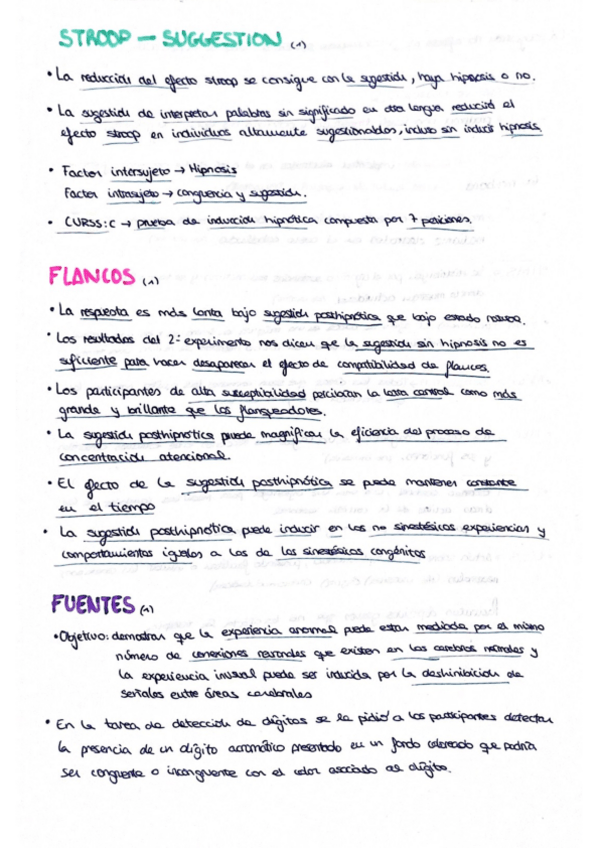 STROOP — SUGGESTION (1)
• La reducción del efecto stroop se consigue con la sugestión, haya hipnosis o no.
• La sugestión de interpretar palabras sin significado en otra lengua reducirá el
efecto stroop en individuos altamente sugestionables, incluso sin inducir hipnosis
• Factor intersujeto → Hipnosis
Factor intrasujeto → congruencia y sugestión.
• CURSS:C → prueba de inducción hipnótica compuesta por 7 posiciones.
FLANCOS (1)
• La respuesta es más lenta bajo sugestión posthipnótica que bajo estado normal.
• Los resultados del 2º experimento nos dicen que la sugestión sin hipnosis no es
suficiente para hacer desaparecer el efecto de compatibilidad de flancos.
• Los participantes de alta susceptibilidad percibían la letra central como más
grande y brillante que los flanqueadores.
• La sugestión posthipnótica puede magnificar la eficiencia del proceso de
concentración atencional.
• El efecto de la sugestión posthipnótica se puede mantener constante
en el tiempo
• La sugestión posthipnótica puede inducir en los no sinestésicos experiencias y
comportamientos iguales a los de los sinestésicos congénitos
FUENTES (1)
• Objetivo: demostrar que la experiencia anormal puede estar mediada por el mismo
número de conexiones neuronales que existen en los cerebros normales y
la experiencia inusual puede ser inducida por la deshinibición de
señales entre áreas cerebrales
• En la tarea de detección de dígitos se le pidió a los participantes detectar
la presencia de un dígito acromático presentado en un fondo coloreado que podría
ser congruente o incongruente con el color asociado al dígito.